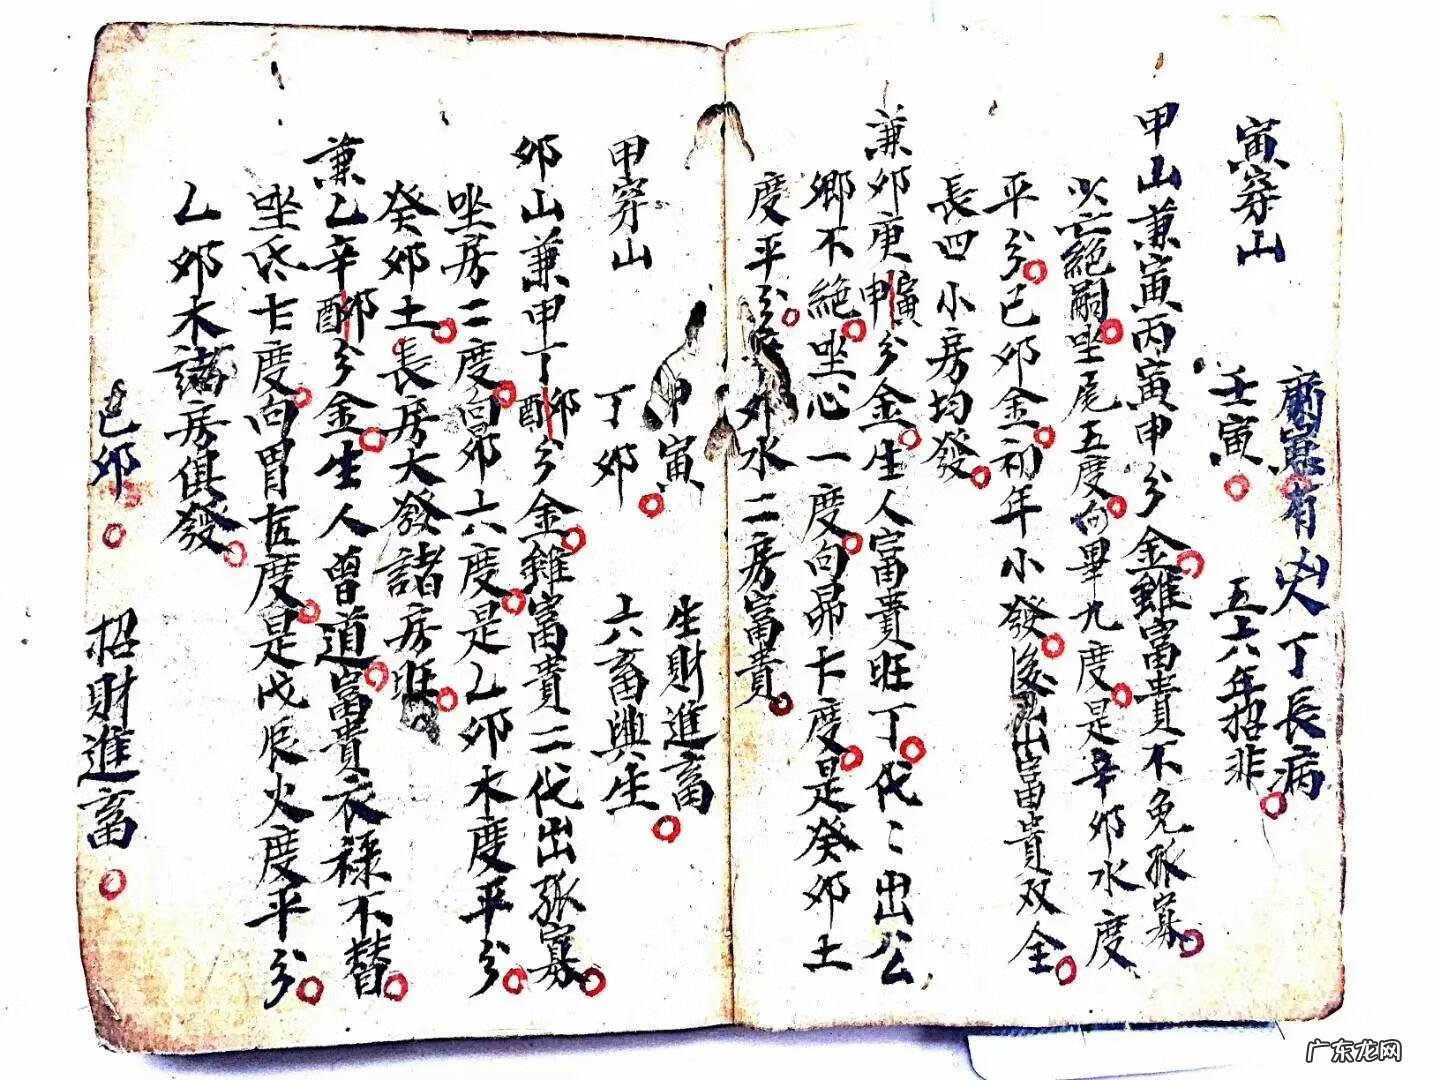 寅穿山
庙寅有凶人丁長病
壬寅 五六年招非
甲山兼寅丙寅申分金雖富貴不免孤寡
以亡絕嗣坐尾五度向畢九度是辛卯水度
平分己卯金初年小發後出富貴双全
長四小房均發
兼卯庚寅庚申分金生人富貴旺丁代〻出公
鄉不絕坐心一度向昴七度是癸卯土
度平分 卯水二房富貴
甲穿山
甲寅 生財進畜
丁卯 六畜興生
卯山兼甲丁卯酉分金雖富貴二代出孤寡
坐房二度向昴六度是乙卯木度平分
癸卯土長房大發諸房旺
兼乙辛卯酉分金生人曾道富貴衣祿不替
坐氐十度向胃十五度是戊辰火度平分
乙卯木諸房俱發
己卯 招財進畜
广东龙网